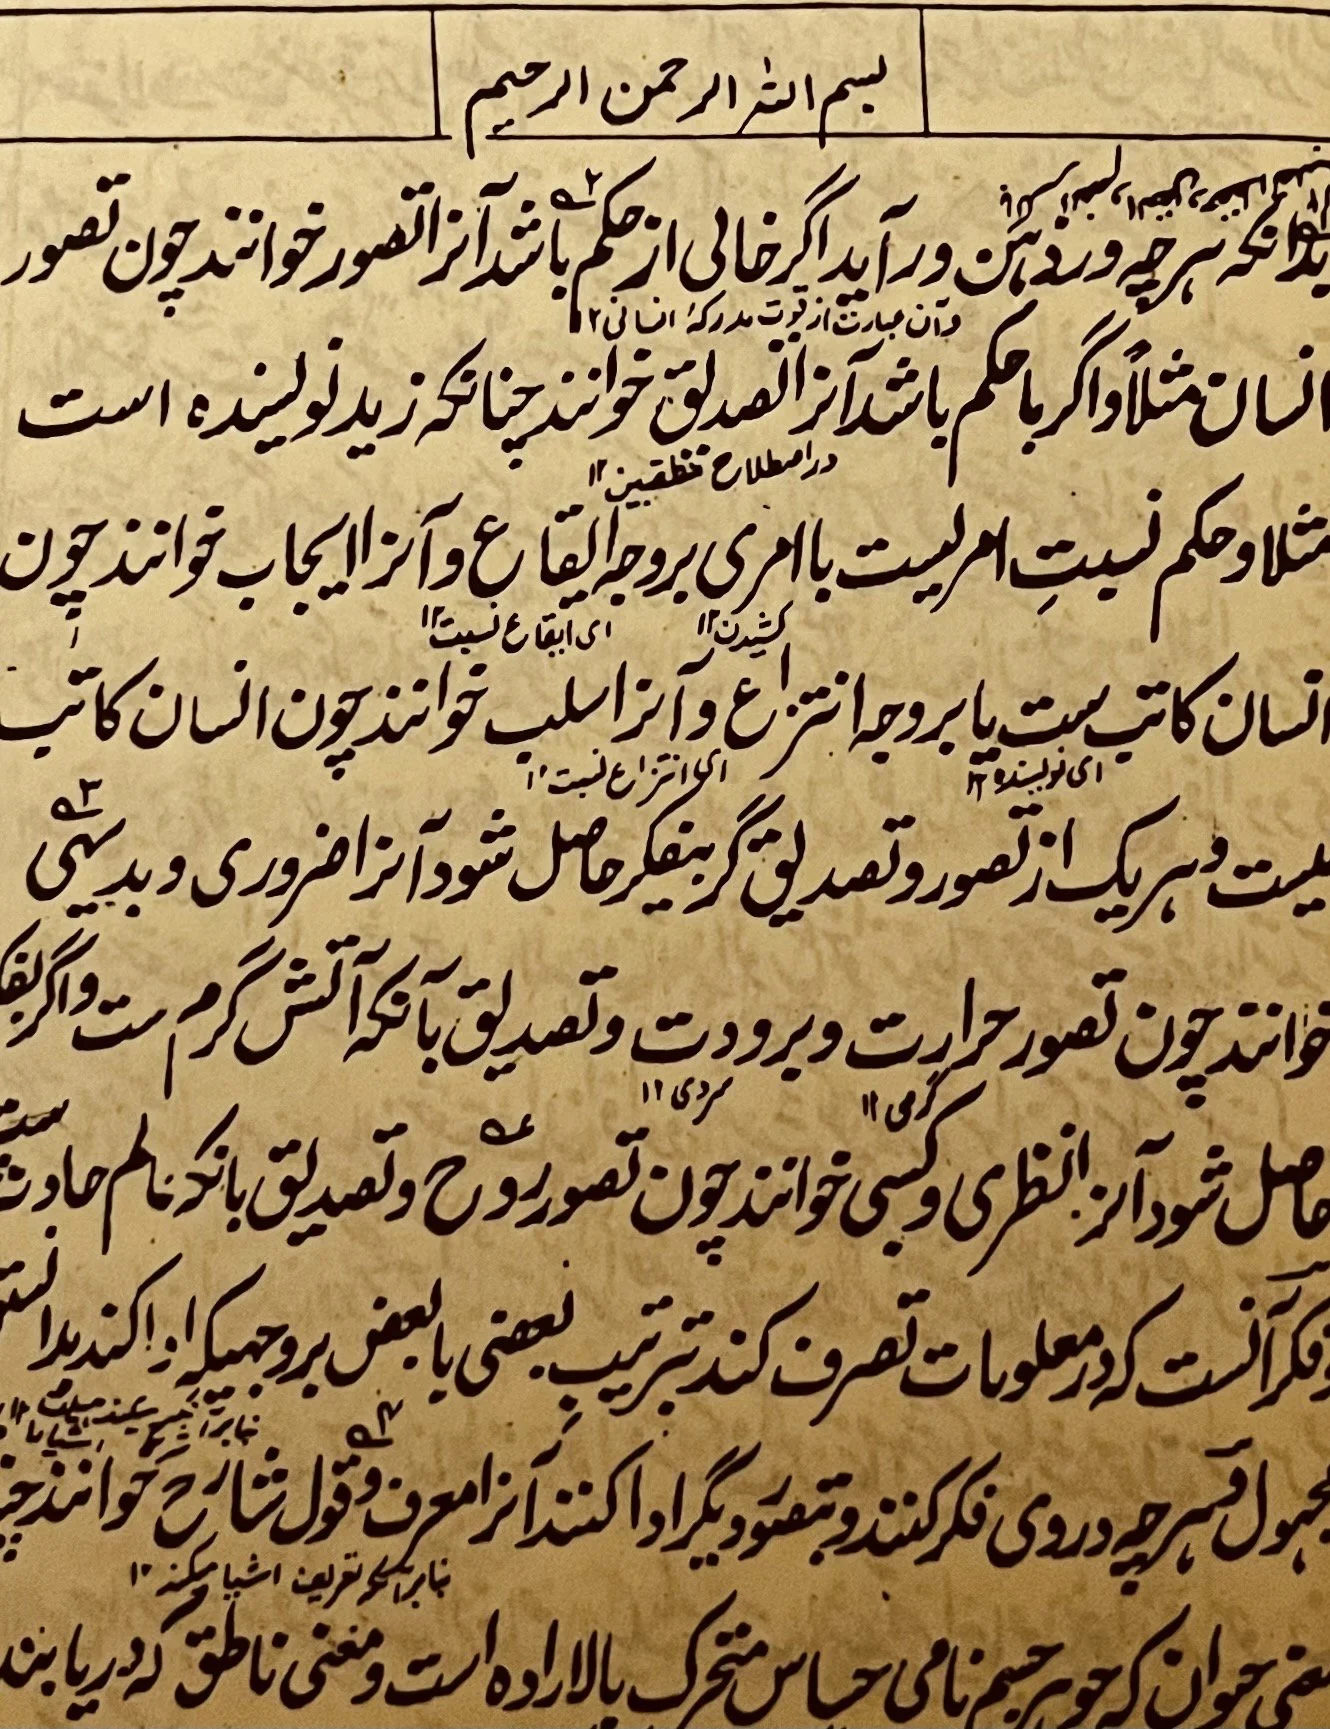 بسم اللہ الرحمن الرحیم
بدانکه هرچه در ذهن در آید اگر خالی از حکم باشد آنرا تصور خوانند چون تصور
وآن عبارت از قوت مدرکهٔ انسانی ۱۲
انسان مثلاً و اگر با حکم باشد آنرا تصدیق خوانند چنانکه زید نویسنده است
در اصطلاح منطقیین ۱۲
مثلا و حکم نسبتِ امریست با امری بروجه ایقاع و آنرا ایجاب خوانند چون
کشیدن ۱۲ ای ایقاع نسبت ۱۲
انسان کاتب ست یا بروجه انتزاع و آنرا سلب خوانند چون انسان کاتب
ای نویسنده ۱۲ ای انتزاع نسبت ۱۲
نیست و هر یک از تصور و تصدیق گر بیفکر حاصل شود آنرا ضروری و بدیهی
خوانند چون تصور حرارت و برودت و تصدیق بآنکه آتش گرم ست و اگر بفکر
گرمی ۱۲ سردی ۱۲
حاصل شود آنرا نظری و کسبی خوانند چون تصور روح و تصدیق بانکه عالم حادث ست
و فکر آنست که در معلومات تصرف کند بترتیب بعضی با بعض بروجهیکه ادا کند بدانستن
مجهول و هرچه در وی فکر کنند و بتصور دیگر ادا کنند آنرا معرف و قول شارح خوانند
بنا بر آنکه تعریف اشیا میکند ۱۲
معنی حیوان که جوهر جسم نامی حساس متحرک بالاراده است و معنی ناطق که دریابنده